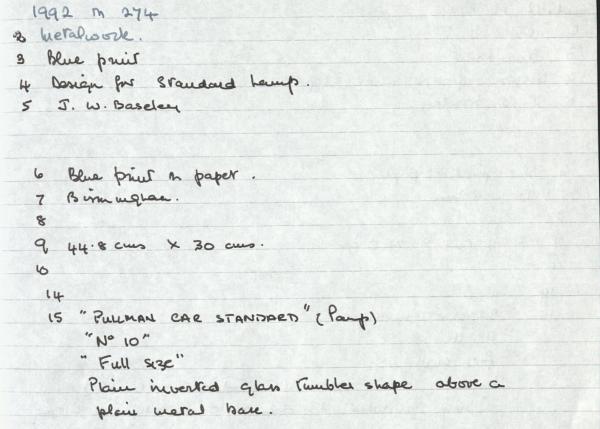 1992 m 274
2 Metalwork.
3 Blue print
4 Design for Standard Lamp.
5 J. W. Baseley
6 Blue print on paper.
7 Birmingham.
8
9 44.8 cms X 30 cms.
10
14
15 "PULLMAN CAR STANDARD" (Lamp)
"No 10"
"Full SIZE"
Plain inverted glass tumbler shape above a
plain metal base.